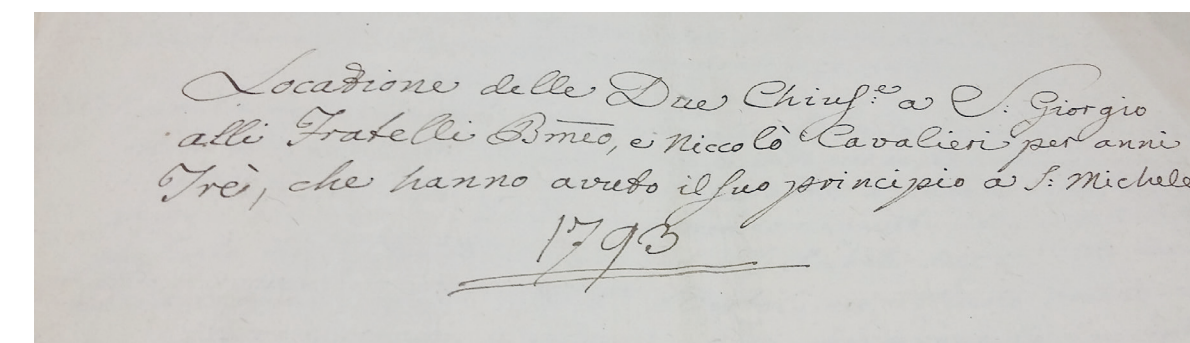 Locatione delle Due Chius:e a S: Giorgio
alli Fratelli Bmeo, e Niccolò Cavalieri per anni
Trè, che hanno avuto il suo principio a S: Michele
1793